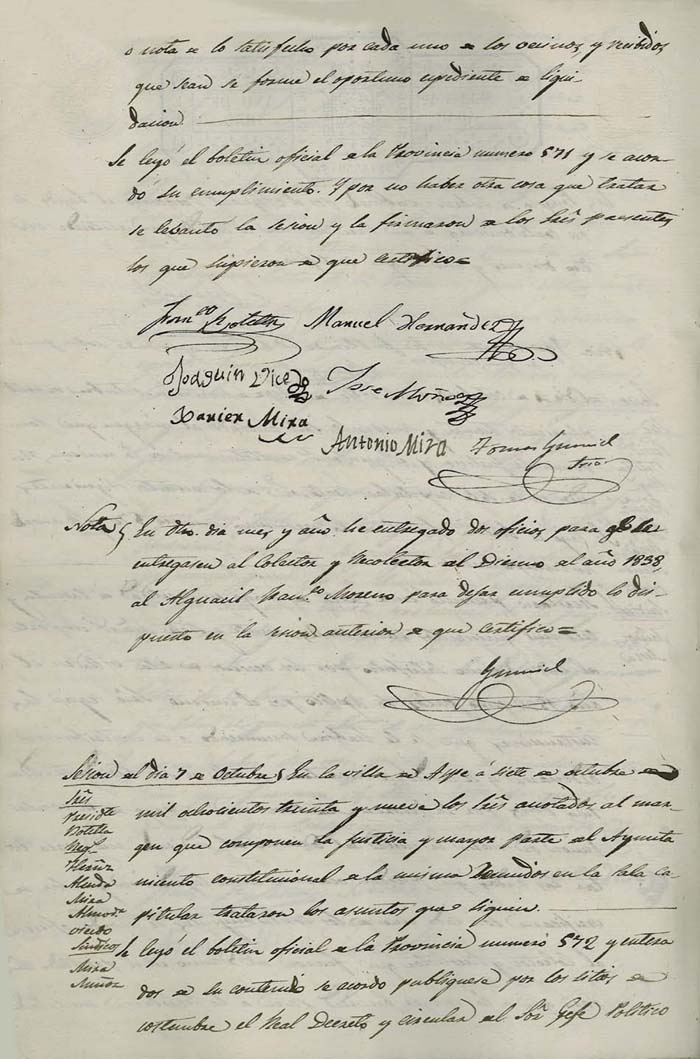 o nota de lo satisfecho por cada uno de los vecinos, y recibidos
que sean se forme el oportuno espediente de liqui
dacion
Se leyó el boletin oficial de la Provincia numero 571 y se acor
dó su cumplimiento. Y por no haber otra cosa que tratar
se levantó la sesion y la firmaron de los Srēs presentes
los que supieron de que certifico=
Fran.co Botella Manuel Hernandez
Joaquin Vice Jose Muñoz
Xavier Mira
Antonio Mira Tomas
Srio
Nota En dho. dia mes y año he entregado dos oficios para
entregasen al Colector y Recolector del Diesmo del año 1838,
al Alguacil Moreno para dejar cumplido lo dis
puesto en la sesion anterior de que certifico=
Sesion del dia 7 de Octubre En la villa de Aspe á siete de octubre de
mil ochocientos treinta y nueve los Srēs anotados al mar
gen que componen la Justicia y mayor parte del Ayunta
miento constitucional de la misma reunidos en la sala ca
pitular trataron los asuntos que siguen.
Srēs
Preside
Botella
Herñz
Mira
Almodo
Sindicos
Mira
Muñoz
Se leyó el boletin oficial de la Provincia numero 572 y entera
dos de su contenido se acordo publiquese por los sitios de
costumbre el Real Decreto y circular del Sōr Gefe Politico